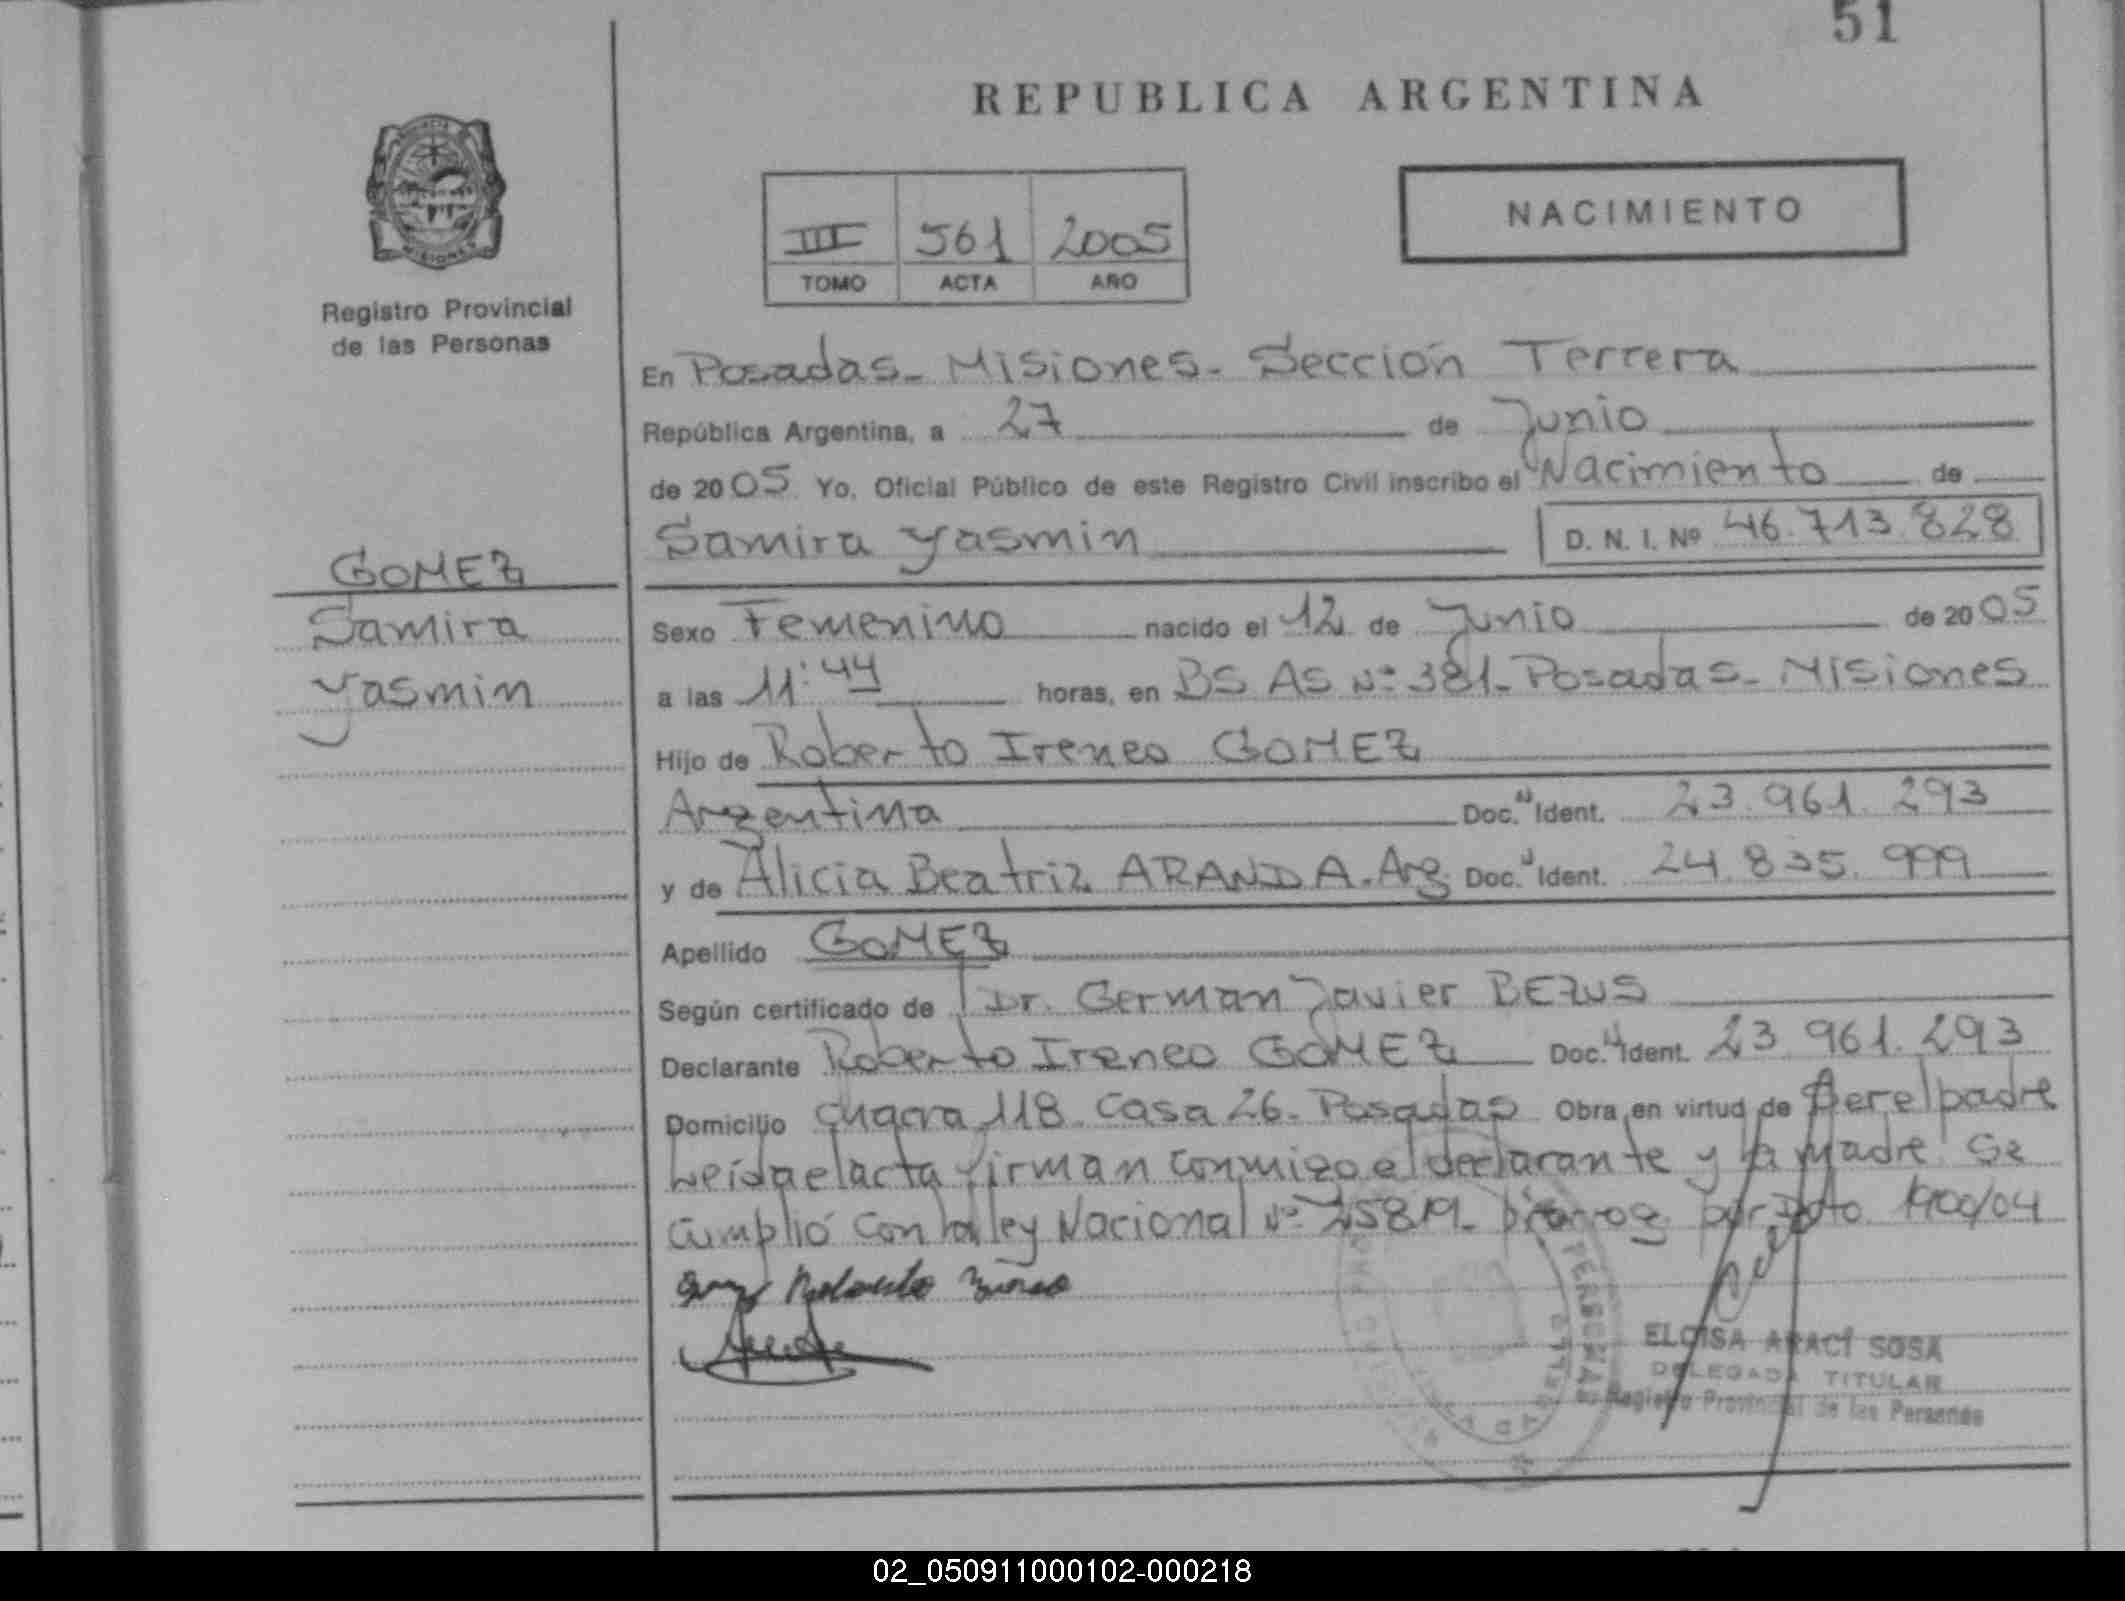 51
REPUBLICA ARGENTINA
MISIONES
Registro Provincial
de las Personas
III 561 2005
TOMO ACTA AÑO
NACIMIENTO
En Posadas - Misiones - Sección Tercera
República Argentina, a 27 de Junio
de 2005 Yo, Oficial Público de este Registro Civil inscribo el Nacimiento de
Samira Yasmin D. N. I. Nº 46.713.828
GOMEZ
Samira
Yasmin
Sexo Femenino nacido el 12 de Junio de 2005
a las 11:44 horas, en BS AS Nº 381 - Posadas - Misiones
Hijo de Roberto Ireneo GOMEZ
Argentina Doc. Ident. 23.961.293
y de Alicia Beatriz ARANDA. Arg. Doc. Ident. 24.835.999
Apellido GOMEZ
Según certificado de Dr. German Javier BEZUS
Declarante Roberto Ireneo GOMEZ Doc. Ident. 23.961.293
Domicilio Chacra 118. Casa 26. Posadas Obra en virtud de ser el padre
Leída el acta firman conmigo el declarante y la madre Se
Cumplió con la ley Nacional Nº 25819. por Dto 1900/04
ELOISA ARACÍ SOSA
DELEGADA TITULAR
Registro Provincial de las Personas
02_050911000102-000218